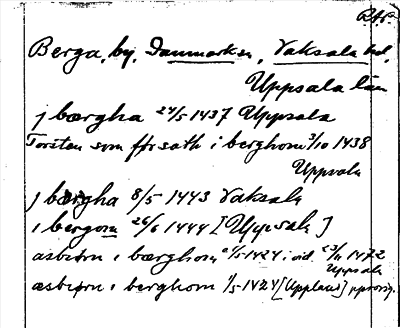 RAP.
Berga, by, Danmarks sn, Vaksala hd,
Uppsala län
j bærgha 24/5 1437 Uppsala
Torsten som ffor sath i berghom 3/10 1438
Uppsala
j bærgha 8/5 1443 Vaksala
i bergom 26/6 1444 [Uppsala]
asbiørn i bærghom 1/5 1424 i vid. 23/11 1472
Uppsala
asbiørn i berghom 1/5 1424 [Uppland]